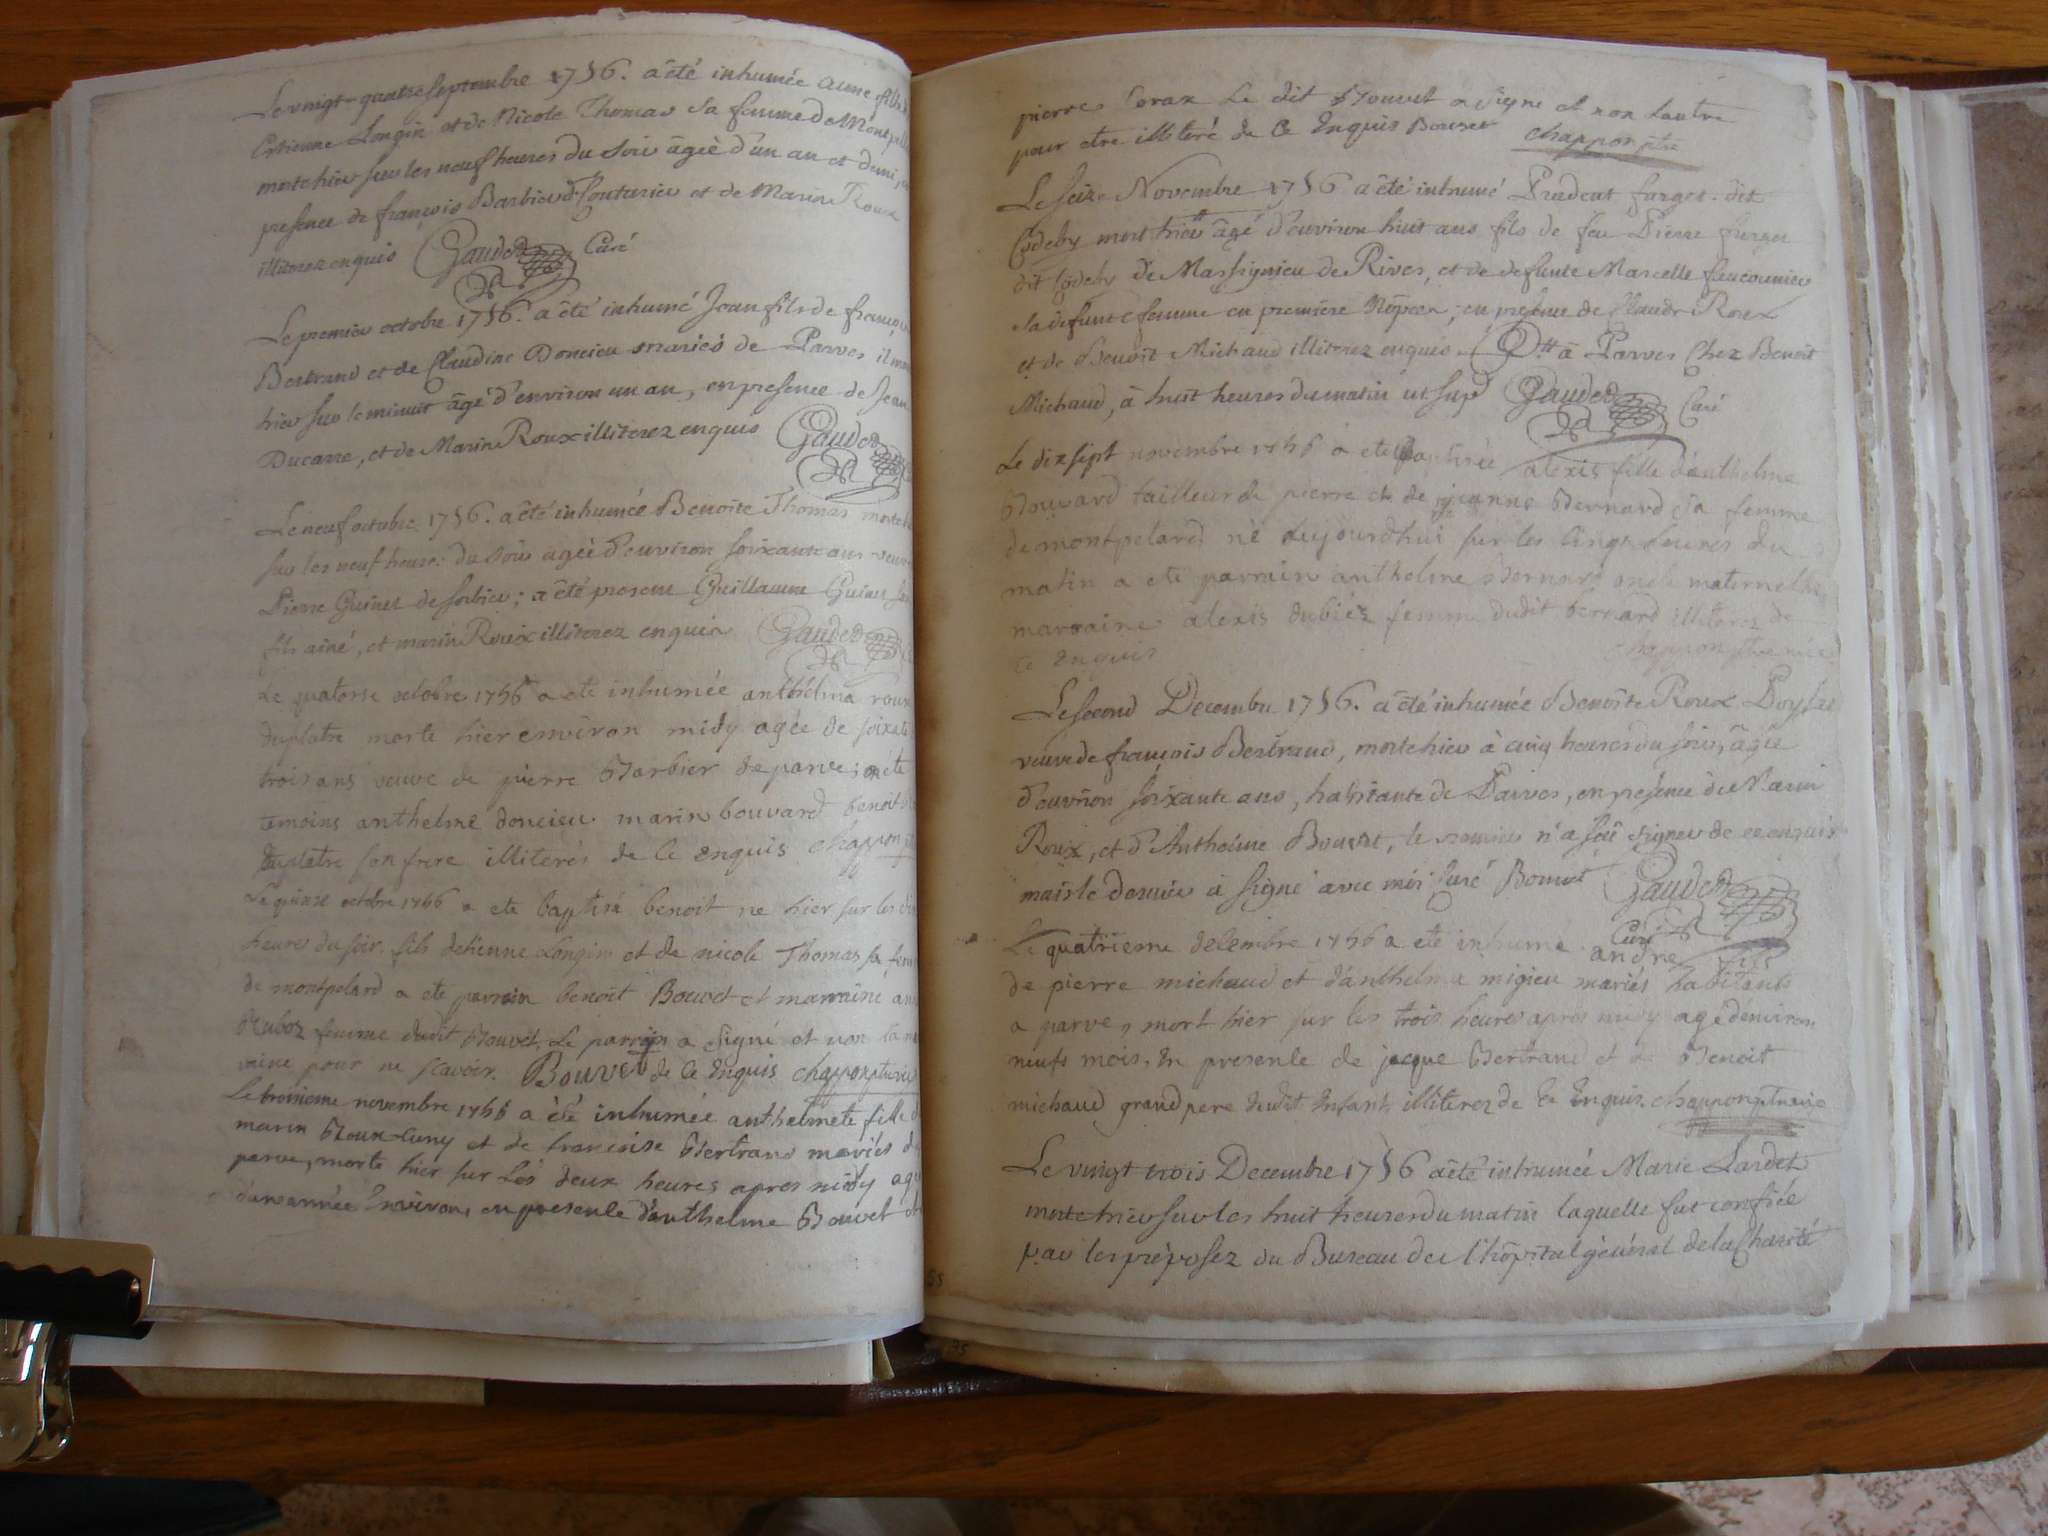 Le vingt-quatre septembre 1756. a été inhumée anne fille
Estienne Longin et de Nicole Thomas sa femme de Montpel
morte hier sur les neuf heures du soir âgée d'un an et demi,
presence de françois Barbier Couturier et de Marin Roux
illiterez enquis Gaudet Curé
Le premier octobre 1756. a été inhumé Jean fils de françois
Bertrand et de Claudine Doncieu mariés de Parves il mo
hier sur le minuit âgé d'environ un an, en presence de Jean
Ducarre, et de Marin Roux illiterez enquis Gaudet
Le neuf octobre 1756. a été inhumée Benoîte Thomas morte
sur les neuf heures du soir agée d'environ soixante ans veuve
Pierre Guinet de sorbier; a été present Guillaume Guinet son
fils ainé, et marin Roux illiterez enquis Gaudet
Le quatorse octobre 1756 a ete inhumée anthelma roux
duplatre morte hier environ midy agée de soixate
trois ans veuve de pierre Barbier de parve; on été
temoins anthelme doncieu marin bouvard benoit
duplatre son frere illiterés de ce enquis chappon
Le quinse octobre 1756 a ete baptisé benoit ne hier sur les dix
heures du soir fils detienne Longin et de nicole Thomas sa fem
de montpelard a ete parrain benoit Bouvet et marraine an
Ruboz femme dudit Bouvet, Le parrain a signé et non la ma
raine pour ne scavoir. Bouvet de ce Enquis chappon
Le troisieme novembre 1756 a èté inhumée anthelmete fille d
marin Roux-Cuny et de francoise Bertrand mariés d
parve, morte hier sur Les deux heures apres midy agé
d'une année Environ, en presence d'anthelme Bouvet et
pierre Corax Le dit Bouvet a signe et non Lautre
pour etre illiteré de ce Enquis Bouvet chappon ptre
Le seize Novembre 1756 a été inhumé Prudent furget dit
Codeby mort hier âgé d'environ huit ans fils de feu Pierre furget
dit Codeby de Massignieu de Rives, et de defunte Marcelle
sa defunte femme en premiere Nôpces; en presence de Claude Roux
et de Benoit Michaud illiterez enquis. à Parves Chez Benoit
Michaud, à huit heures du matin ut sup Gaudet Curé
Le dixsept novembre 1756 a ete baptisée alexis fille d'anthelme
Bouvard tailleur de pierre et de jeanne Bernard sa femme
de montpelard né aujourdhui sur les cinq heures du
matin a ete parrain anthelme Bernard oncle maternelle
marraine alexis dubiéz femme dudit bernard illiterez de
ce enquis chappon
Le second Decembre 1756. a été inhumée Benoîte Roux
veuve de françois Bertrand, morte hier à cinq heures du soir, âgée
d'environ soixante ans, habitante de Parves, en présence de Marin
Roux, et d'Anthelme Bouvet, le premier n'a sçû signer de ce enquis
mais le dernier à signé avec moi Curé Bouvet Gaudet
Curé
Le quatrieme decembre 1756 a ete inhumé andre fils
de pierre michaud et d'anthelma migieu mariés habitants
a parve, mort hier sur les trois heures apres midy age denviron
neufs mois, En presence de jacque Bertrand et de Benoit
michaud grand pere dudit Enfant illiterez de ce Enquis. chappon
Le vingt trois Decembre 1756 a été inhumée Marie Lardet
morte hier sur les huit heures du matin laquelle fut confiée
par les préposez du Bureau de l'hôpital géneral de la Charité